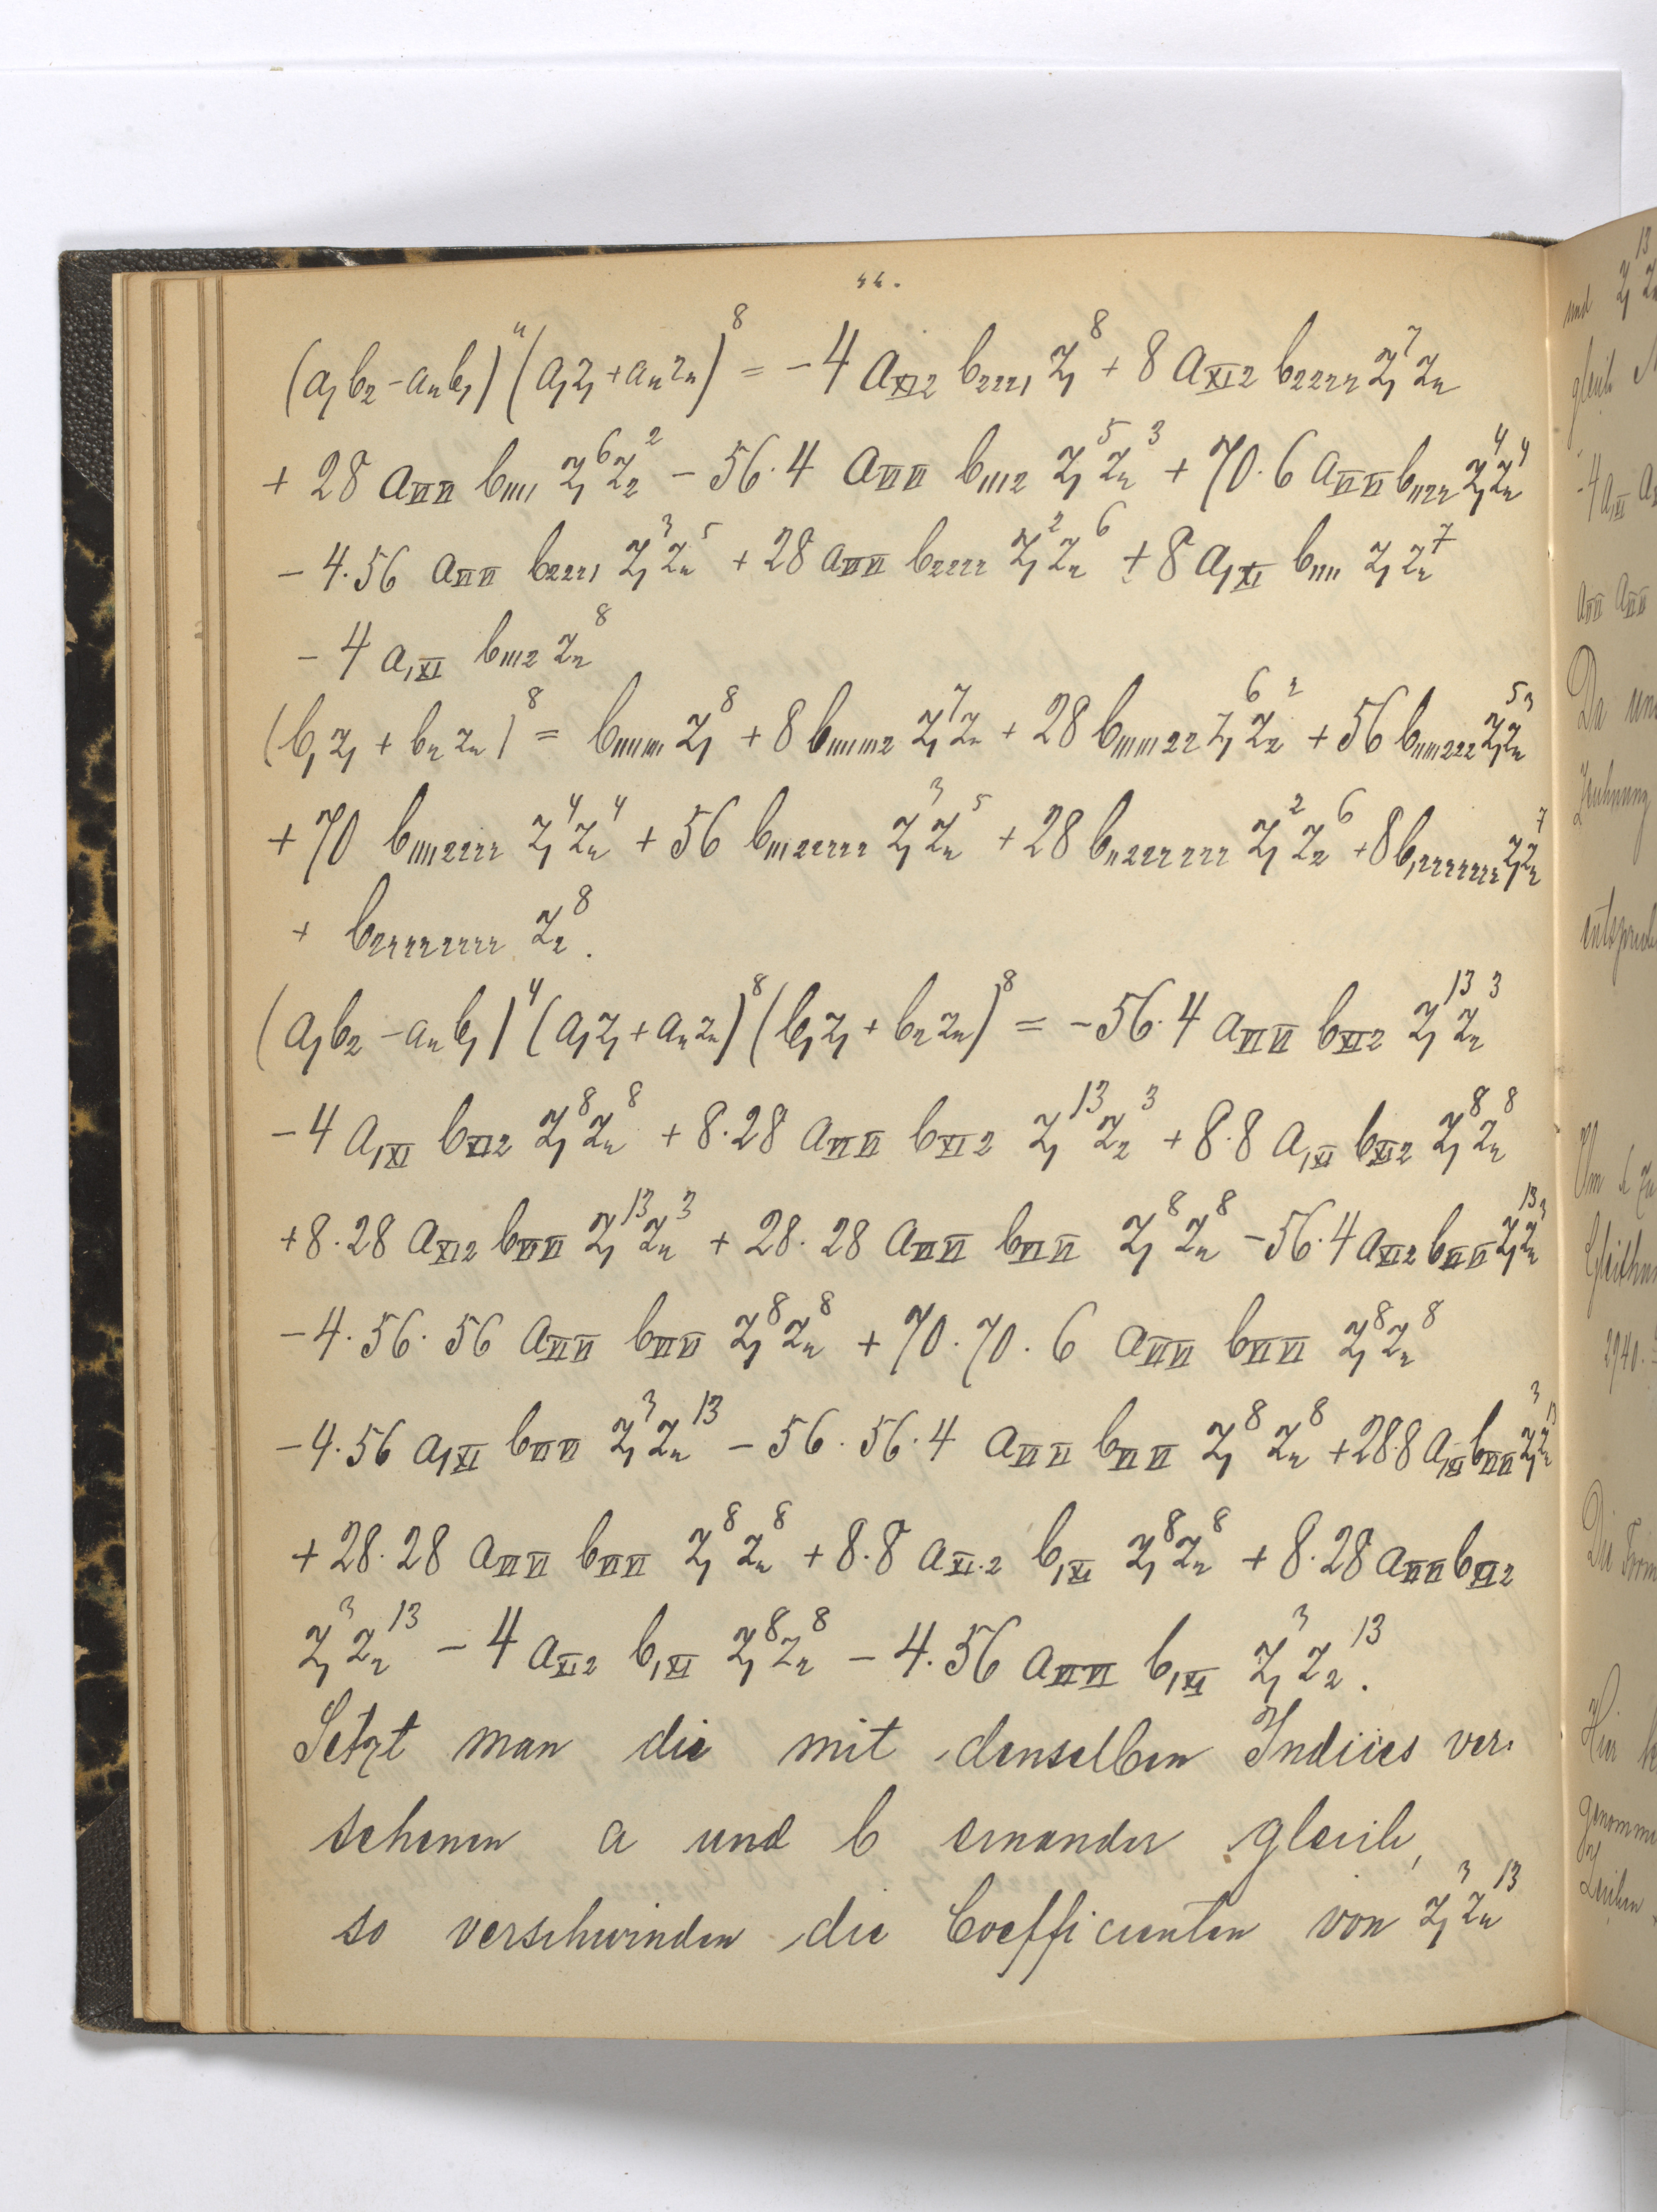 44.
(a₁b₂-a₂b₁)⁴(a₁z₁+a₂z₂)⁸ = -4 a_XI2 b₂₂₂₁ z₁⁸ + 8 a_XI2 b₂₂₂₂ z₁⁷z₂
+ 28 a_VIVI b₁₁₁₁ z₁⁶z₂² - 56·4 a_VIVI b₁₁₁₂ z₁⁵z₂³ + 70·6 a_VIVI b₁₁₂₂ z₁⁴z₂⁴
- 4·56 a_VIVI b₂₂₂₁ z₁³z₂⁵ + 28 a_VIVI b₂₂₂₂ z₁²z₂⁶ + 8 a₁XI b₁₁₁₁ z₁z₂⁷
- 4 a₁XI b₁₁₁₂ z₂⁸
(b₁z₁ + b₂z₂)⁸ = b₁₁₁₁₁₁₁₁ z₁⁸ + 8 b₁₁₁₁₁₁₁₂ z₁⁷z₂ + 28 b₁₁₁₁₁₁₂₂ z₁⁶z₂² + 56 b₁₁₁₁₁₂₂₂ z₁⁵z₂³
+ 70 b₁₁₁₁₂₂₂₂ z₁⁴z₂⁴ + 56 b₁₁₁₂₂₂₂₂ z₁³z₂⁵ + 28 b₁₁₂₂₂₂₂₂ z₁²z₂⁶ + 8 b₁₂₂₂₂₂₂₂ z₁z₂⁷
+ b₂₂₂₂₂₂₂₂ z₂⁸.
(a₁b₂-a₂b₁)⁴(a₁z₁+a₂z₂)⁸(b₁z₁+b₂z₂)⁸ = -56·4 a_VIVI b_XI2 z₁¹³z₂³
- 4 a₁XI b_XI2 z₁⁸z₂⁸ + 8·28 a_VIVI b_XI2 z₁¹³z₂³ + 8·8 a₁XI b_XI2 z₁⁸z₂⁸
+ 8·28 a_XI2 b_VIVI z₁¹³z₂³ + 28·28 a_VIVI b_VIVI z₁⁸z₂⁸ - 56·4 a_XI2 b_VIVI z₁¹³z₂³
- 4·56·56 a_VIVI b_VIVI z₁⁸z₂⁸ + 70·70·6 a_VIVI b_VIVI z₁⁸z₂⁸
- 4·56 a₁XI b_VIVI z₁³z₂¹³ - 56·56·4 a_VIVI b_VIVI z₁⁸z₂⁸ + 28·8 a₁XI b_VIVI z₁³z₂¹³
+ 28·28 a_VIVI b_VIVI z₁⁸z₂⁸ + 8·8 a_XI·2 b₁XI z₁⁸z₂⁸ + 8·28 a_VIVI b_XI2
z₁³z₂¹³ - 4 a_XI2 b₁XI z₁⁸z₂⁸ - 4·56 a_VIVI b₁XI z₁³z₂¹³.
Setzt man die mit denselben Indices ver-
sehenen a und b einander gleich,
so verschwinden die Coefficienten von z₁³z₂¹³